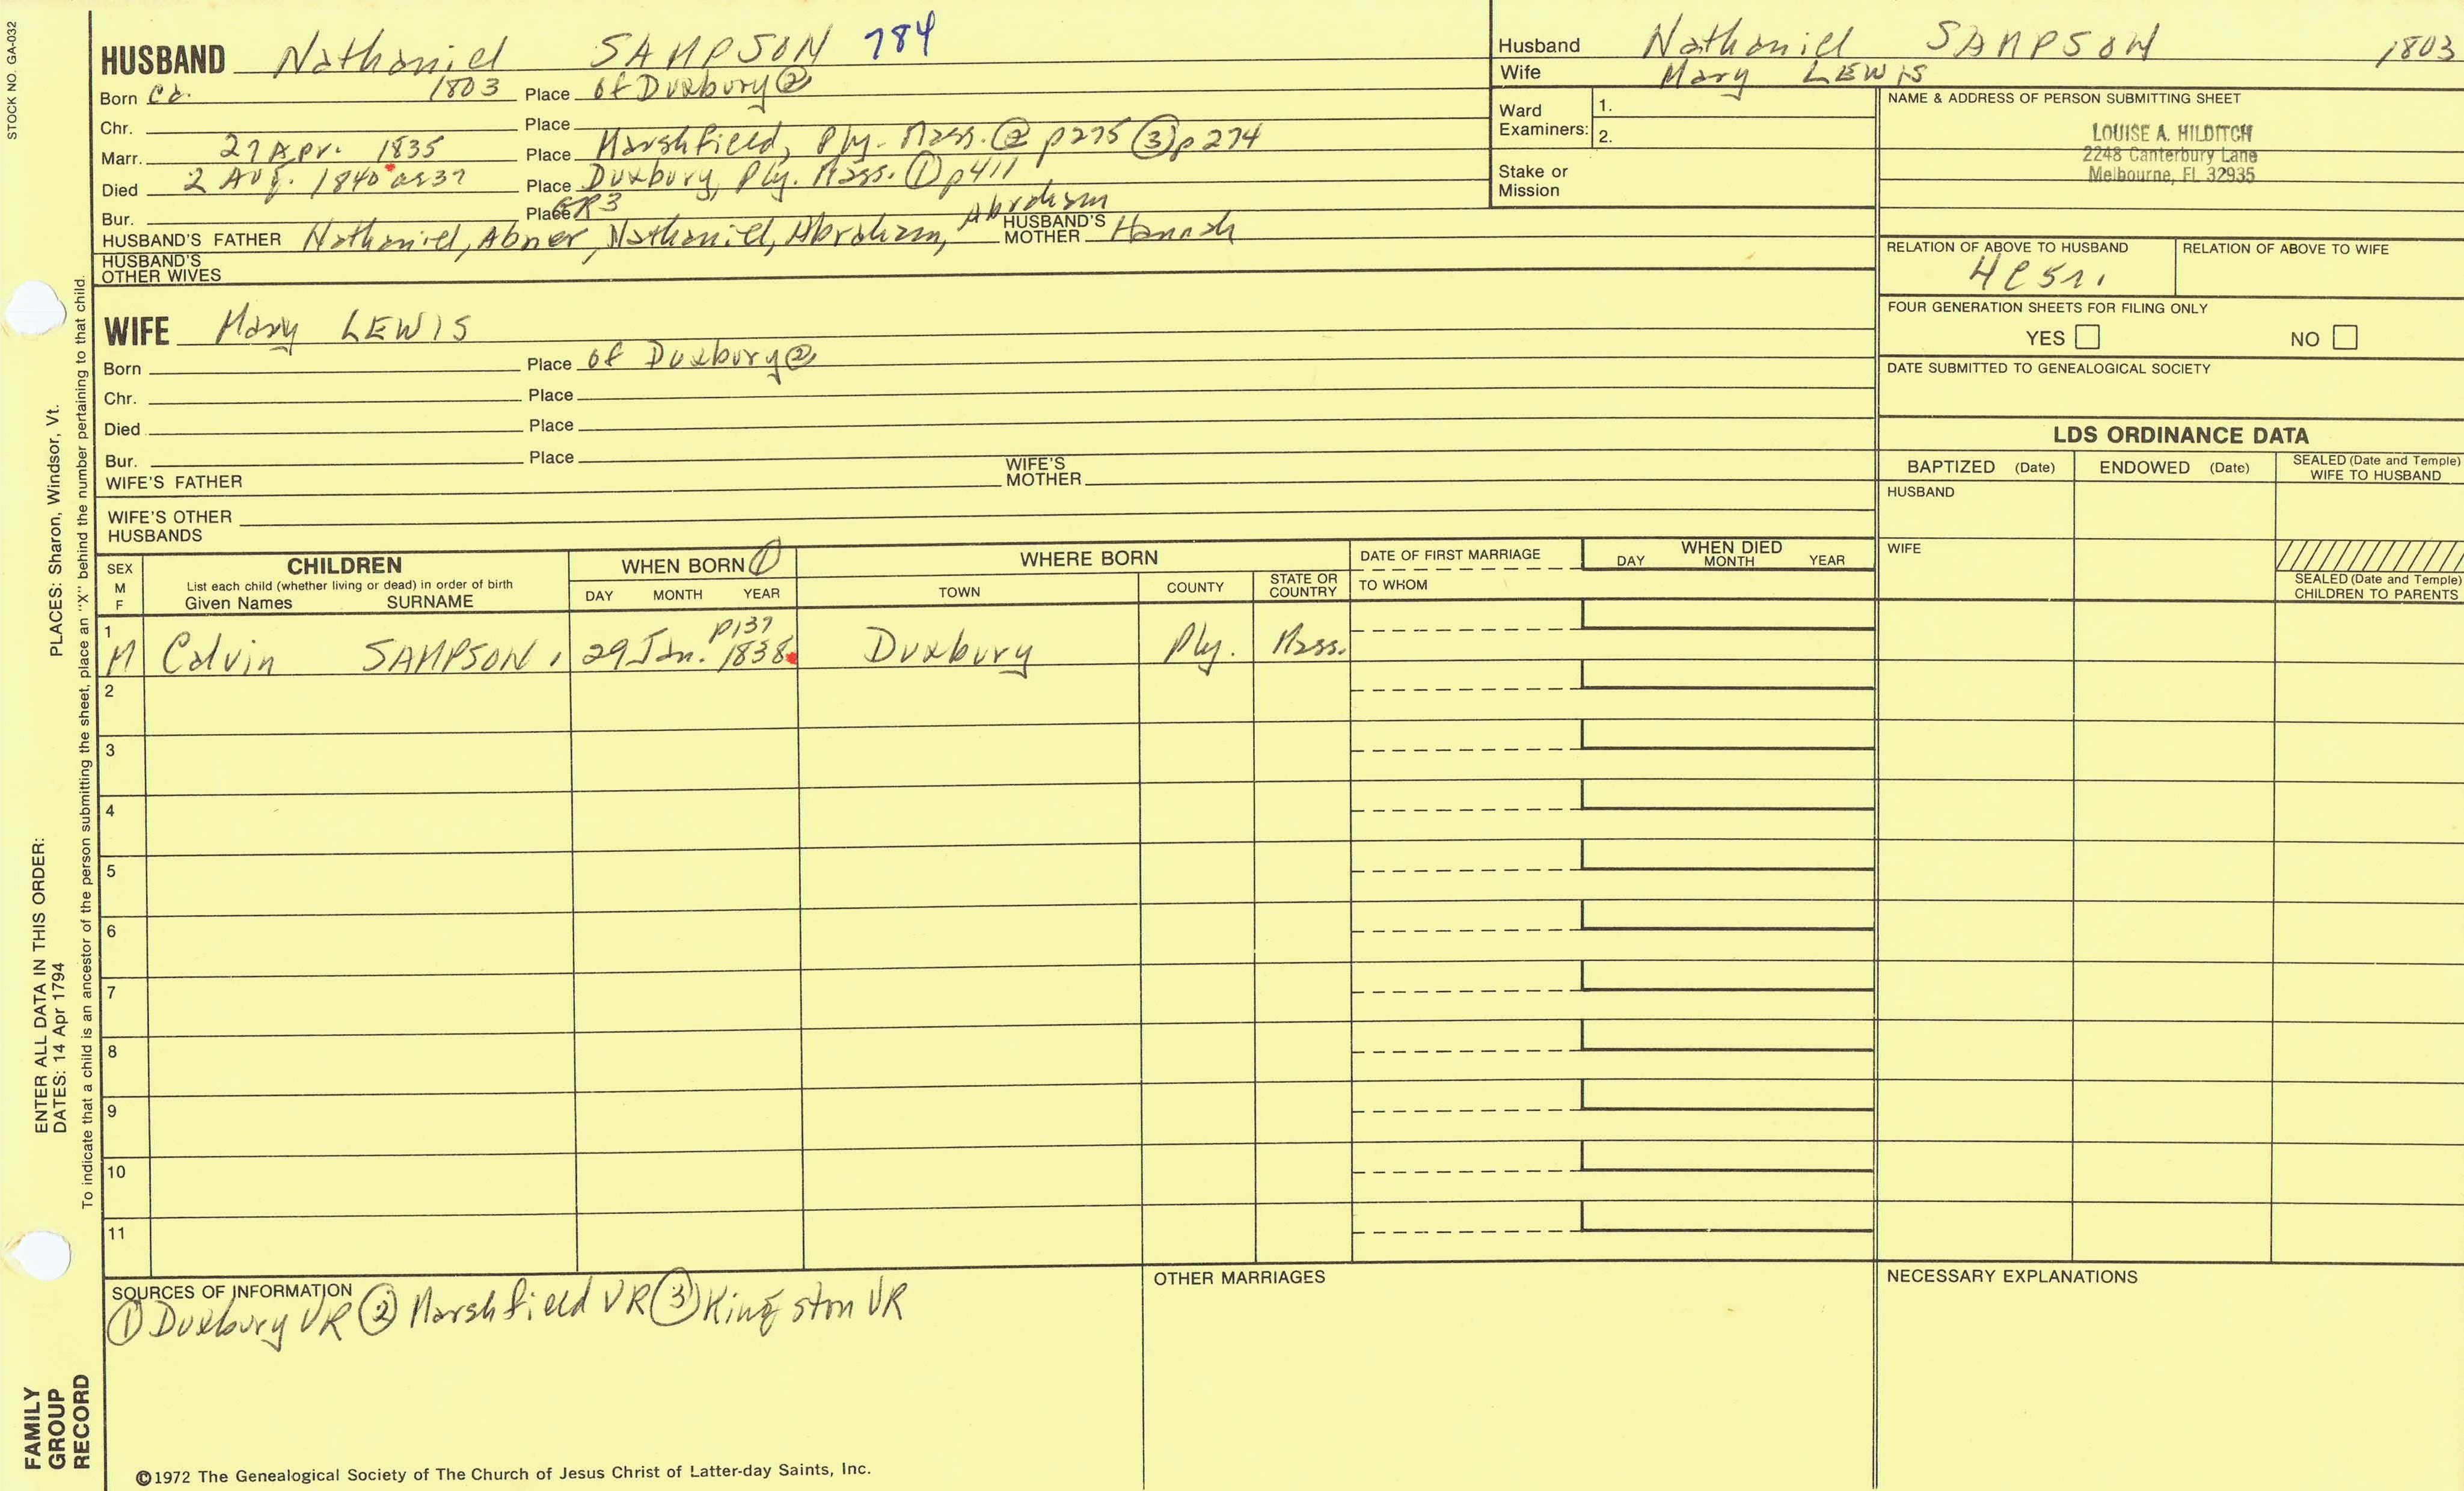 STOCK NO. GA-032
HUSBAND Nathaniel SAMPSON 784
Born Ca. 1803 Place of Duxbury ②
Chr. Place
Marr. 27 Apr. 1835 Place Marshfield, Ply. Mass. ② p275 ③ p274
Died 2 Aug. 1840 ae37 Place Duxbury, Ply. Mass. ① p411
Bur. Place GR3
HUSBAND'S FATHER Nathaniel, Abner, Nathaniel, Abraham, Abraham HUSBAND'S MOTHER Hannah
HUSBAND'S OTHER WIVES
WIFE Mary LEWIS
Born Place of Duxbury ②
Chr. Place
Died Place
Bur. Place
WIFE'S FATHER WIFE'S MOTHER
WIFE'S OTHER HUSBANDS
Husband Nathaniel SAMPSON 1803
Wife Mary LEWIS
Ward Examiners: 1.
2.
Stake or Mission
NAME & ADDRESS OF PERSON SUBMITTING SHEET
LOUISE A. HILDITCH
2248 Canterbury Lane
Melbourne, FL 32935
RELATION OF ABOVE TO HUSBAND RELATION OF ABOVE TO WIFE
FOUR GENERATION SHEETS FOR FILING ONLY
YES NO
DATE SUBMITTED TO GENEALOGICAL SOCIETY
LDS ORDINANCE DATA
BAPTIZED (Date) ENDOWED (Date) SEALED (Date and Temple) WIFE TO HUSBAND
HUSBAND
WIFE
SEALED (Date and Temple) CHILDREN TO PARENTS
SEX M F
CHILDREN
List each child (whether living or dead) in order of birth
Given Names SURNAME
WHEN BORN ①
DAY MONTH YEAR
WHERE BORN
TOWN COUNTY STATE OR COUNTRY
DATE OF FIRST MARRIAGE
TO WHOM
WHEN DIED
DAY MONTH YEAR
1 p137
M Calvin SAMPSON 29 Jan. 1838 Duxbury Ply. Mass.
2
3
4
5
6
7
8
9
10
11
SOURCES OF INFORMATION
① Duxbury VR ② Marshfield VR ③ Kingston VR
OTHER MARRIAGES
NECESSARY EXPLANATIONS
©1972 The Genealogical Society of The Church of Jesus Christ of Latter-day Saints, Inc.
ENTER ALL DATA IN THIS ORDER:
DATES: 14 Apr 1794
PLACES: Sharon, Windsor, Vt.
To indicate that a child is an ancestor of the person submitting the sheet, place an "X" behind the number pertaining to that child.
FAMILY
GROUP
RECORD